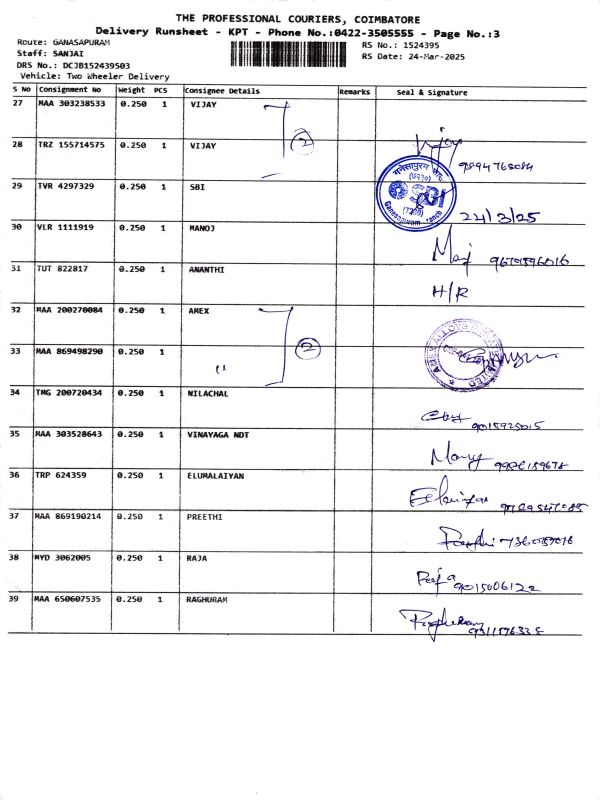 THE PROFESSIONAL COURIERS, COIMBATORE
Delivery Runsheet - KPT - Phone No.:0422-3505555 - Page No.:3
Route: GANASAPURAM
RS No.: 1524395
Staff: SANJAI
RS Date: 24-Mar-2025
DRS No.: DCJB152439503
Vehicle: Two Wheeler Delivery
S No Consignment No Weight PCS Consignee Details Remarks Seal & Signature
27 MAA 303238533 0.250 1 VIJAY
2
28 TRZ 155714575 0.250 1 VIJAY
9894768084
29 TVR 4297329 0.250 1 SBI
SBI
24/3/25
30 VLR 1111919 0.250 1 MANOJ
Manoj
31 TUT 822817 0.250 1 ANANTHI
H/R
32 MAA 200270084 0.250 1 AMEX
2
33 MAA 869498290 0.250 1 "
34 TMG 200720434 0.250 1 NILACHAL
9015925015
35 MAA 303528643 0.250 1 VINAYAGA NDT
36 TRP 624359 0.250 1 ELUMALAIYAN
37 MAA 869190214 0.250 1 PREETHI
38 MYD 3062005 0.250 1 RAJA
Raja 9015006122
39 MAA 650607535 0.250 1 RAGHURAM
Raghuram